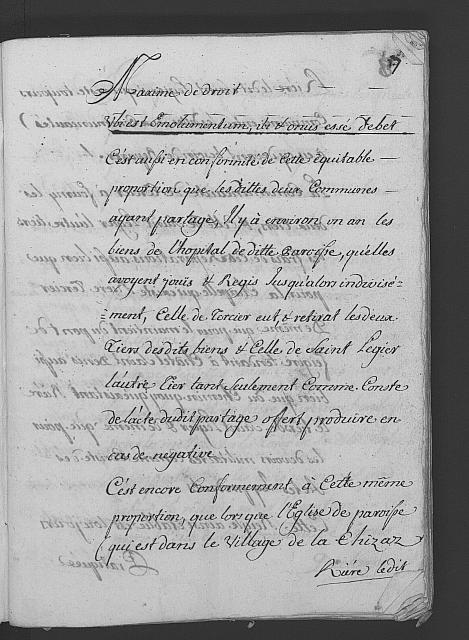 7
Maxime de droit
Ubi est Emolumentum, ibi & onus esse debet
C'est aussi en conformité de cette équitable
proportion que lesdittes deux Communes
ayant partagé, Il y à environ un an les
biens de l'hopital de ditte Paroisse, qu'elles
avoyent jouïs & Regis Jusqu'alors indivisé=
=ment, Celle de Corcier eut & retirat les deux
Tiers desdits biens & Celle de Saint Legier
l'autre Tier tant seulement Comme Conste
de l'acte dudit partage offert produire en
cas de negative
C'est encore Conformement à Cette même
proportion, que lors que l'Eglise de paroisse
(qui est dans le Village de la Chizaz
Riére ledit